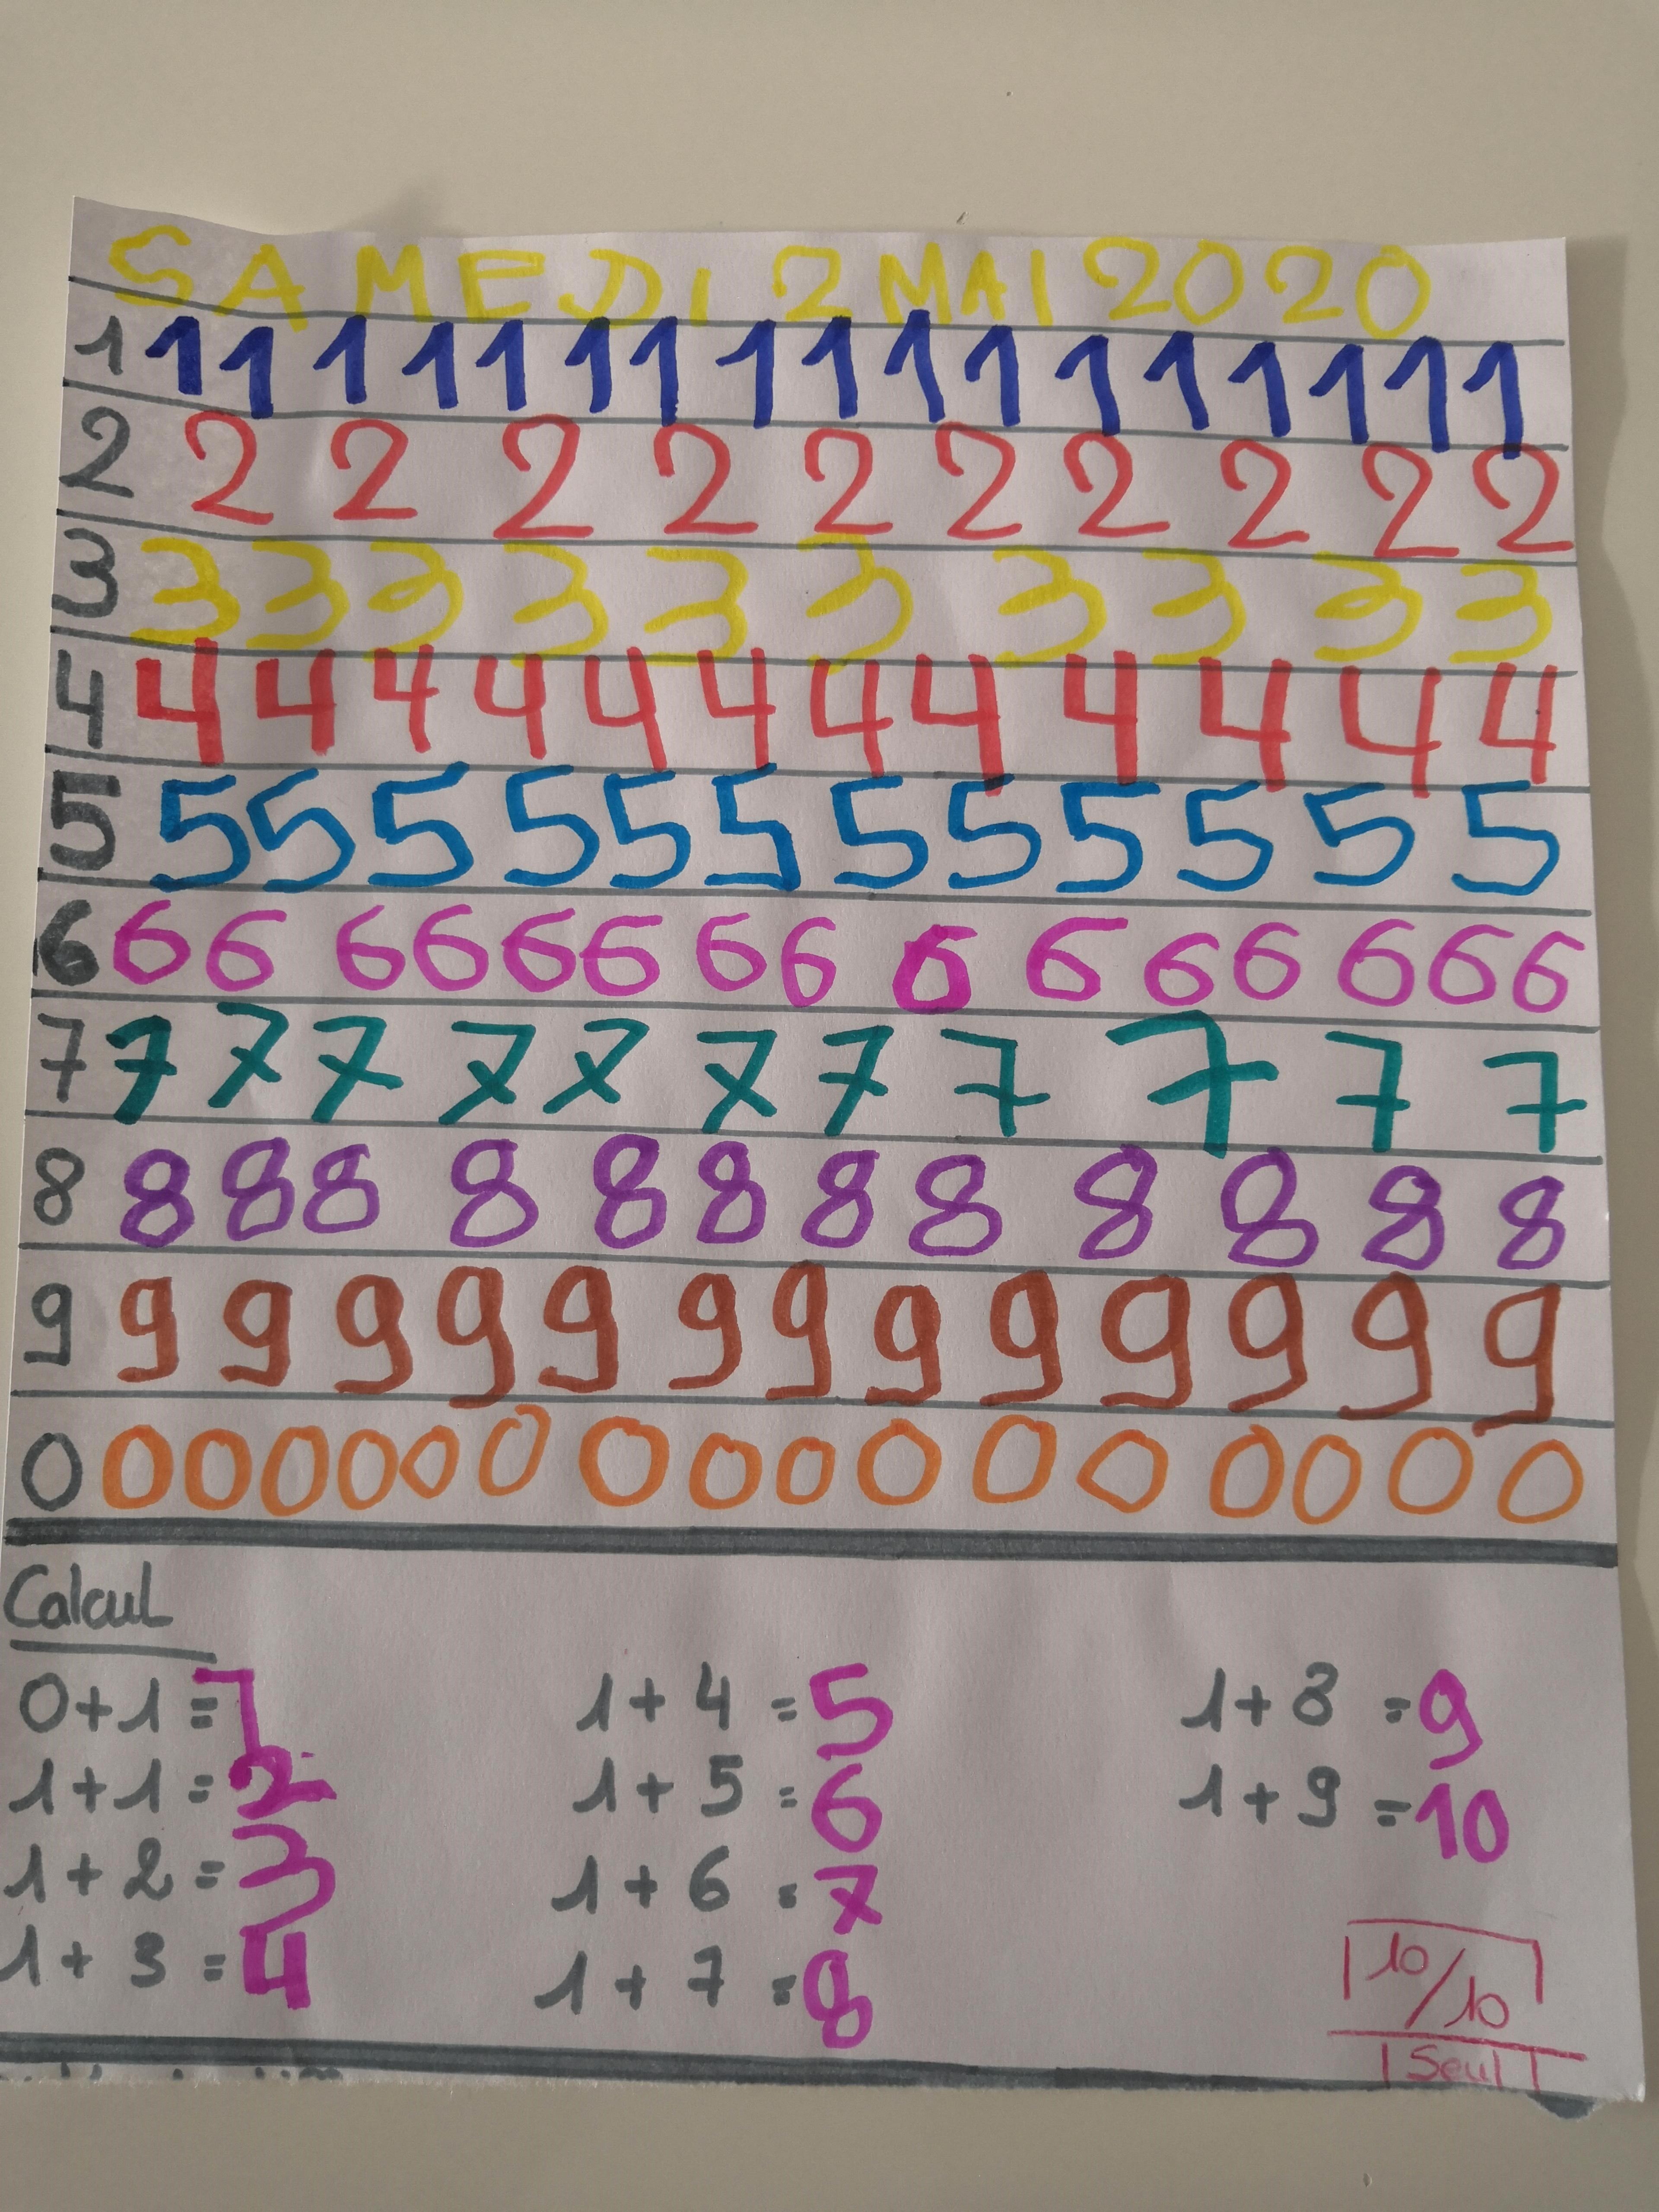 SAMEDI 2 MAI 2020
1 1 1 1 1 1 1 1 1 1 1 1 1 1 1 1 1 1
2 2 2 2 2 2 2 2 2 2 2
3 3 3 3 3 3 3 3 3 3 3
4 4 4 4 4 4 4 4 4 4 4 4 4
5 5 5 5 5 5 5 5 5 5 5 5 5
6 6 6 6 6 6 6 6 6 6 6 6 6 6 6 6
7 7 7 7 7 7 7 7 7 7 7 7
8 8 8 8 8 8 8 8 8 8 8 8 8
9 9 9 9 9 9 9 9 9 9 9 9 9 9
0 0 0 0 0 0 0 0 0 0 0 0 0 0 0 0 0
Calcul
0+1=1
1+1=2
1+2=3
1+3=4
1+4=5
1+5=6
1+6=7
1+7=8
1+8=9
1+9=10
10/10
Seul